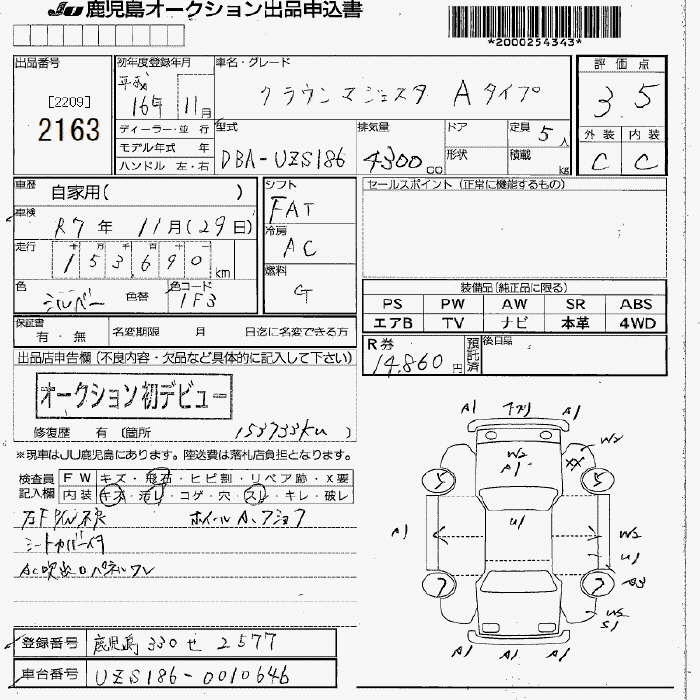 JU 鹿児島オークション出品申込書
*2000254343*
出品番号
[2209]
2163
初年度登録年月
平成
16年 11月
ディーラー・並 行
モデル年式 年
ハンドル 左・右
車名・グレード
クラウンマジェスタ Aタイプ
型式
DBA-UZS186
排気量
4300 cc
ドア
形状
定員 5人
積載 kg
評価点
3.5
外装 内装
C C
車歴 自家用( )
車検 R7年 11月(29日)
走行 十 万 千 百 十 一
153,690 km
色 シルバー 色替
色コード 1F3
シフト
FAT
冷房
AC
燃料
G
セールスポイント (正常に機能するもの)
装備品[純正品に限る]
PS PW AW SR ABS
エアB TV ナビ 本革 4WD
保証書 有・無
名変期限 月 日迄に名変できる方
R券
14,860円
預託済
後日品
出品店申告欄(不良内容・欠品など具体的に記入して下さい)
オークション初デビュー
修復歴 有 [箇所
153733km
※現車はJU鹿児島にあります。陸送費は落札店負担となります。
検査員記入欄
FW キズ・飛石・ヒビ割・リペア跡・X要
内装 キズ・汚レ・コゲ・穴・スレ・キレ・破レ
ホイールA、
シートカバー
AC吹出口パネルワレ
登録番号 鹿児島 330 せ 2577
車台番号 UZS186-0010646
A1 A1
W2
W2
A1
5 5
U1
A1
W2
U1
A3
7 7
W2
S1
A1 A1 A1